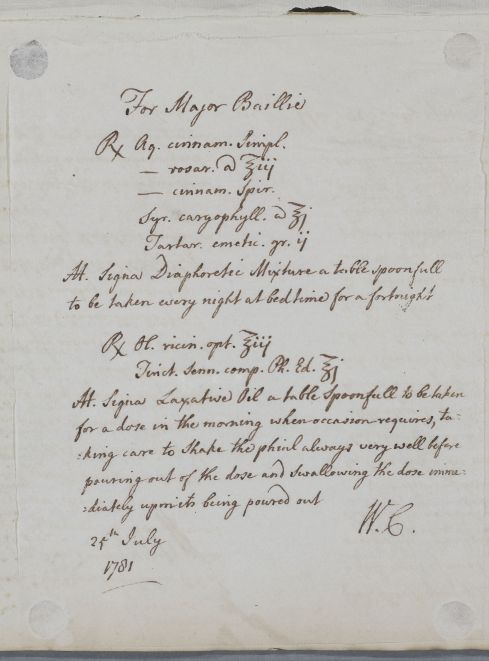 For Major Baillie
℞ Aq. cinnam. Simpl.
— rosar. a ℥iij
— cinnam. Spir.
Syr. caryophyll. a ℥j
Tartar. emetic. gr. ij
M. Signa Diaphoretic Mixture a table spoonfull
to be taken every night at bedtime for a fortnight
℞ Ol. ricin. opt. ℥iij
Tinct. Senn. comp. Ph. Ed. ℥j
M. Signa Laxative Oil a table spoonfull to be taken
for a dose in the morning when occasion requires, ta-
:king care to shake the phial always very well before
pouring out of the dose and swallowing the dose imme:
:diately upon its being poured out
W. C.
25th July
1781